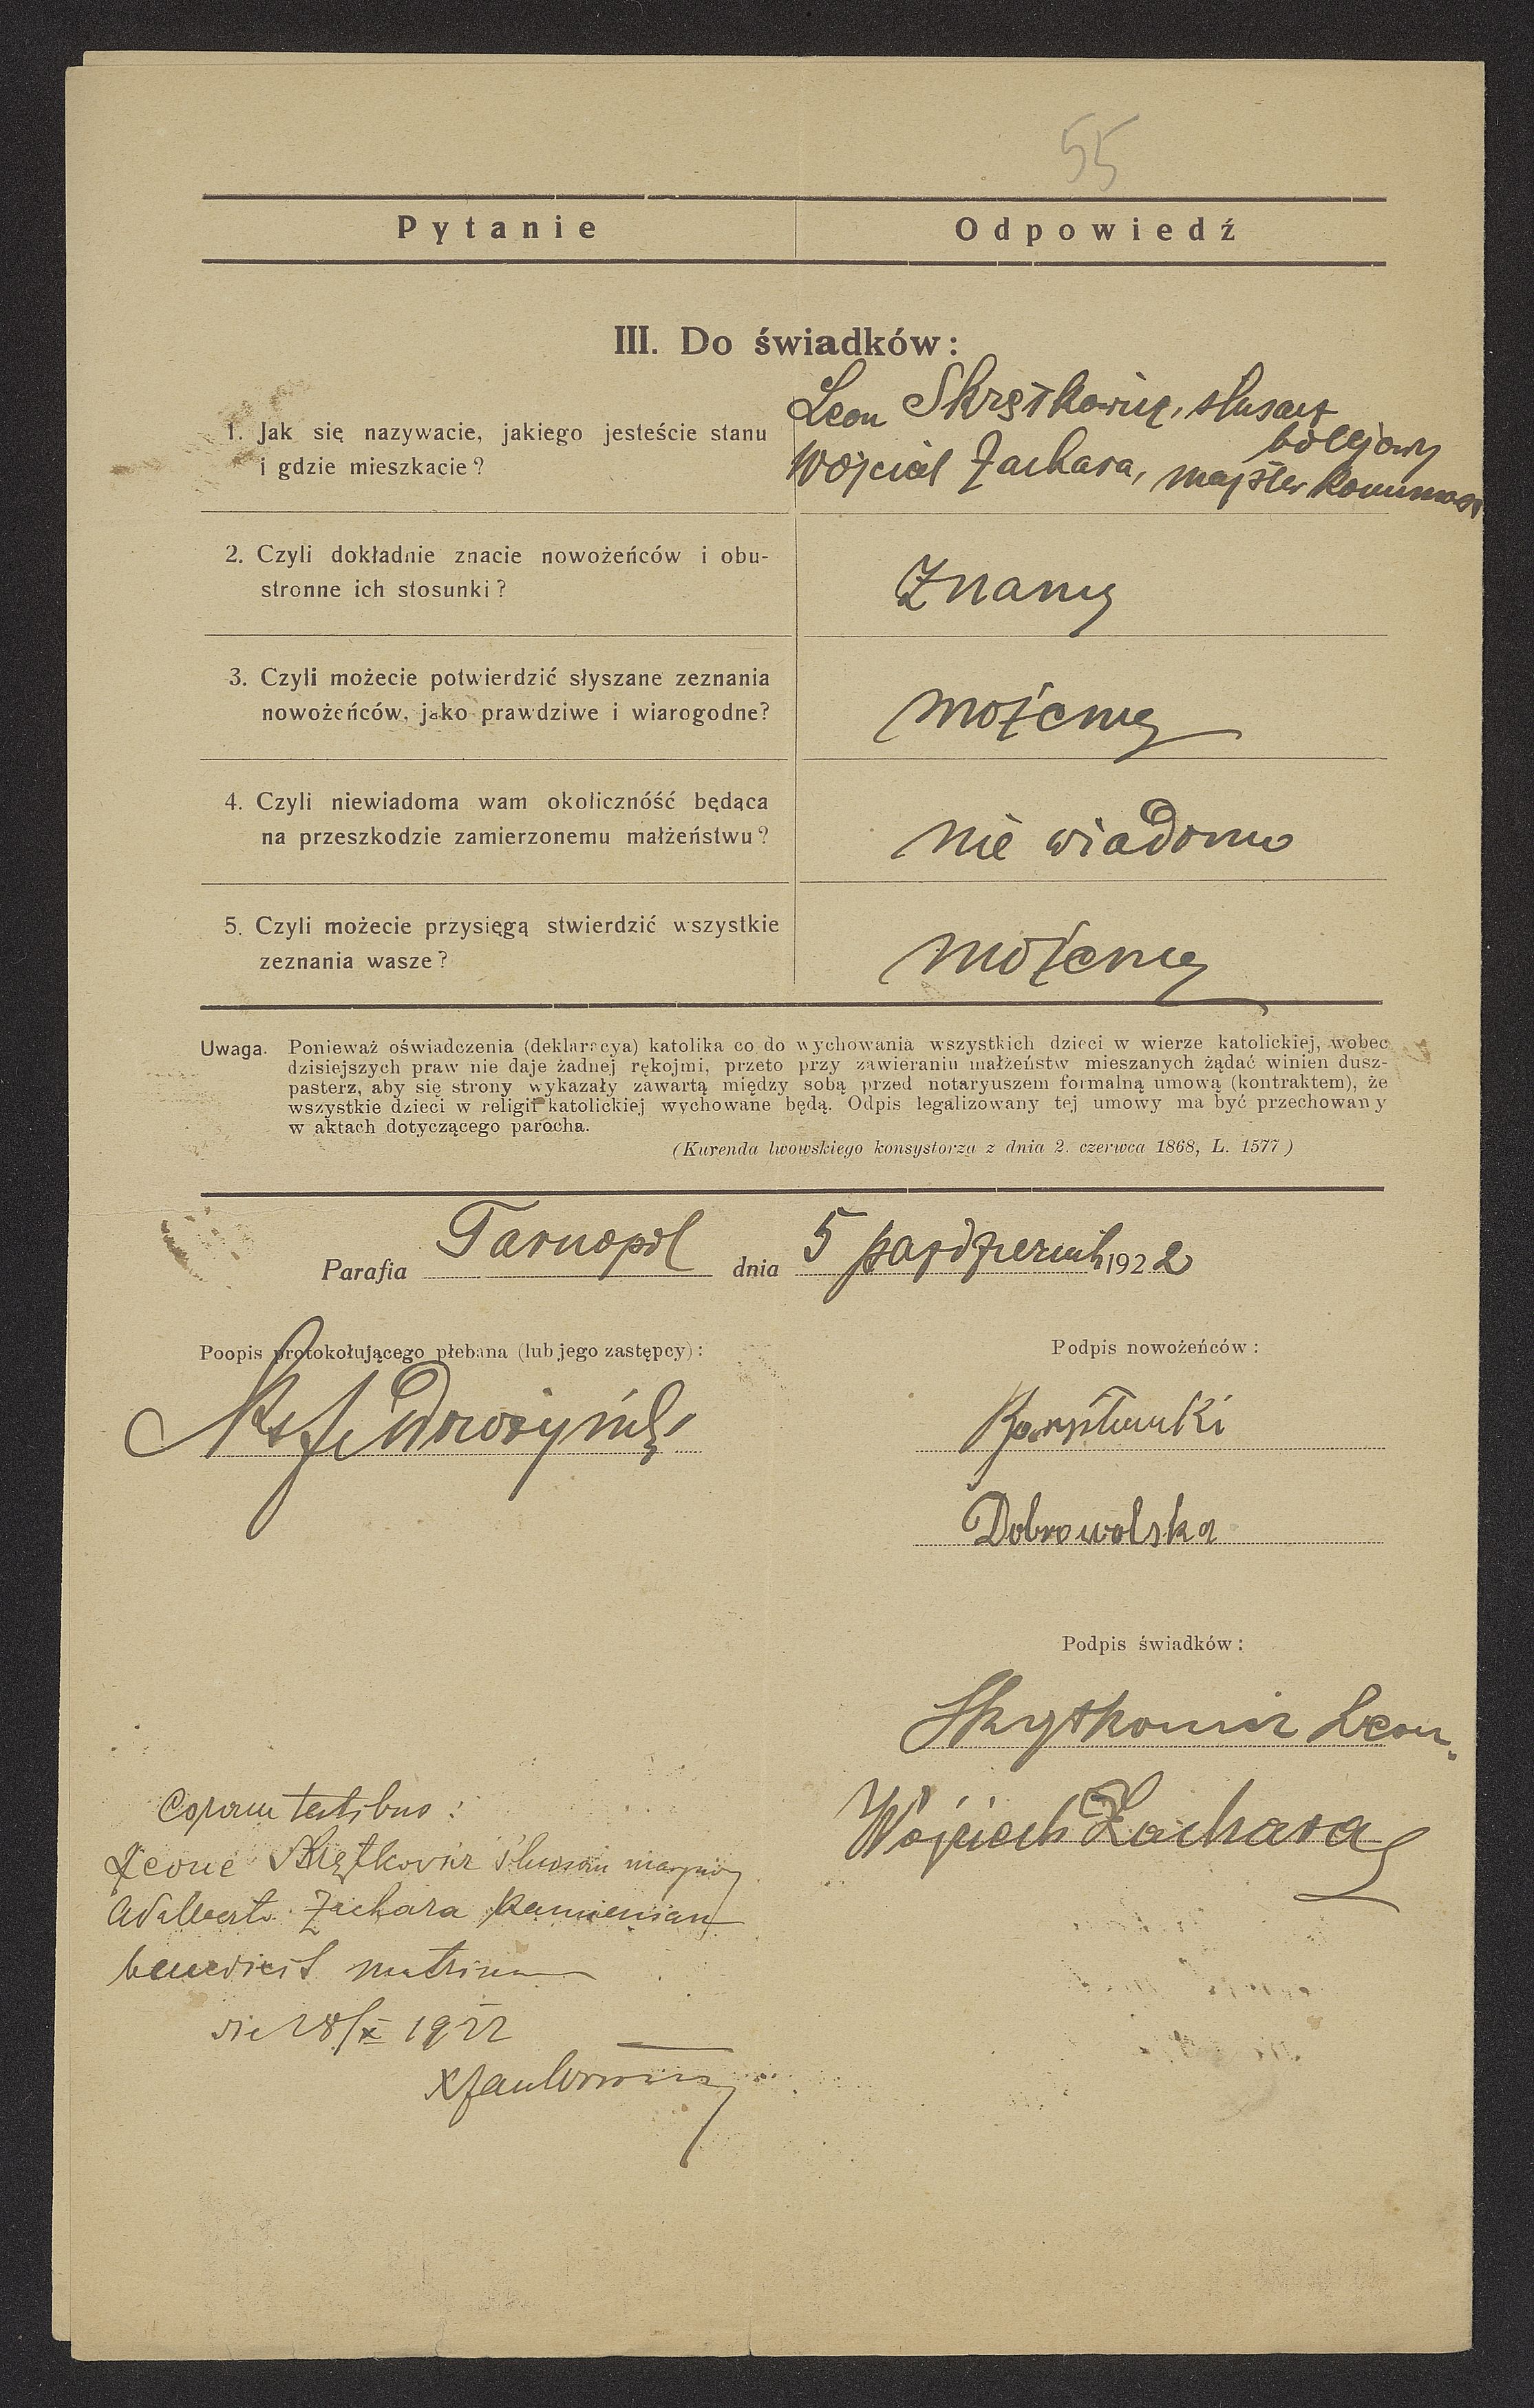 55
Pytanie Odpowiedź
III. Do świadków:
1. Jak się nazywacie, jakiego jesteście stanu
i gdzie mieszkacie?
Leon Skrętkowicz, ślusarz
kolejowy
Wojciech Zachara, majster
2. Czyli dokładnie znacie nowożeńców i obu-
stronne ich stosunki?
Znamy
3. Czyli możecie potwierdzić słyszane zeznania
nowożeńców, jako prawdziwe i wiarogodne?
możemy
4. Czyli niewiadoma wam okolicznóść będąca
na przeszkodzie zamierzonemu małżeństwu?
nie wiadomo
5. Czyli możecie przysięgą stwierdzić wszystkie
zeznania wasze?
możemy
Uwaga. Ponieważ oświadczenia (deklaracya) katolika co do wychowania wszystkich dzieci w wierze katolickiej, wobec
dzisiejszych praw nie daje żadnej rękojmi, przeto przy zawieraniu małżeństw mieszanych żądać winien dusz-
pasterz, aby się strony wykazały zawartą między sobą przed notaryuszem formalną umową (kontraktem), że
wszystkie dzieci w religii katolickiej wychowane będą. Odpis legalizowany tej umowy ma być przechowany
w aktach dotyczącego parocha.
(Kurenda lwowskiego konsystorza z dnia 2. czerwca 1868, L. 1577)
Parafia Tarnopol dnia 5 październik 1922
Poopis protokołującego plebana (lub jego zastępcy):
Podpis nowożeńców:
Dobrowolska
Podpis świadków:
Skrętkowicz Leon
Wojciech Zachara
Coram testibus:
Leone Skrętkowicz
Adalberto Zachara
benedixit
die 28/X 1922